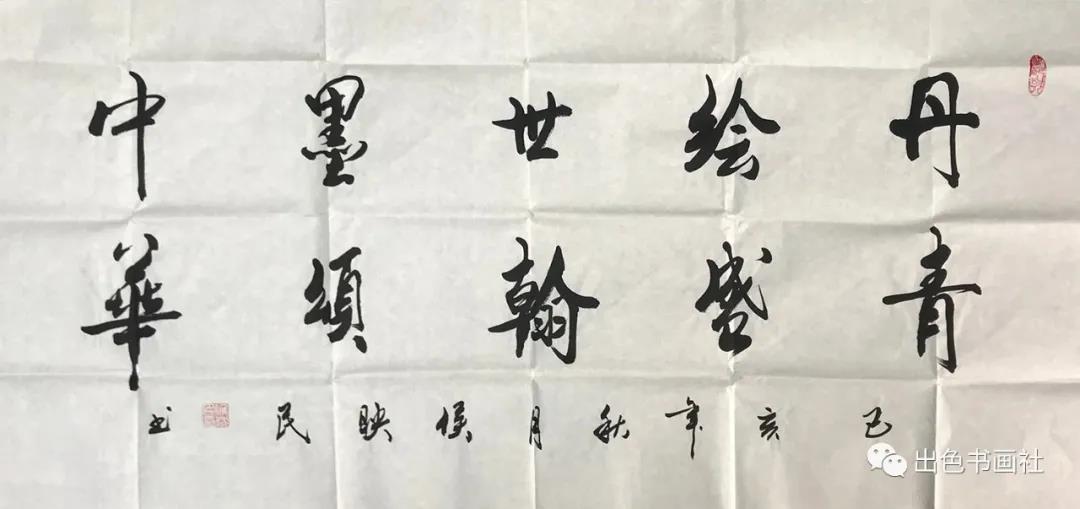 丹青
绘盛
世翰
墨颂
中華
己亥年秋月侯映民书
出色书画社